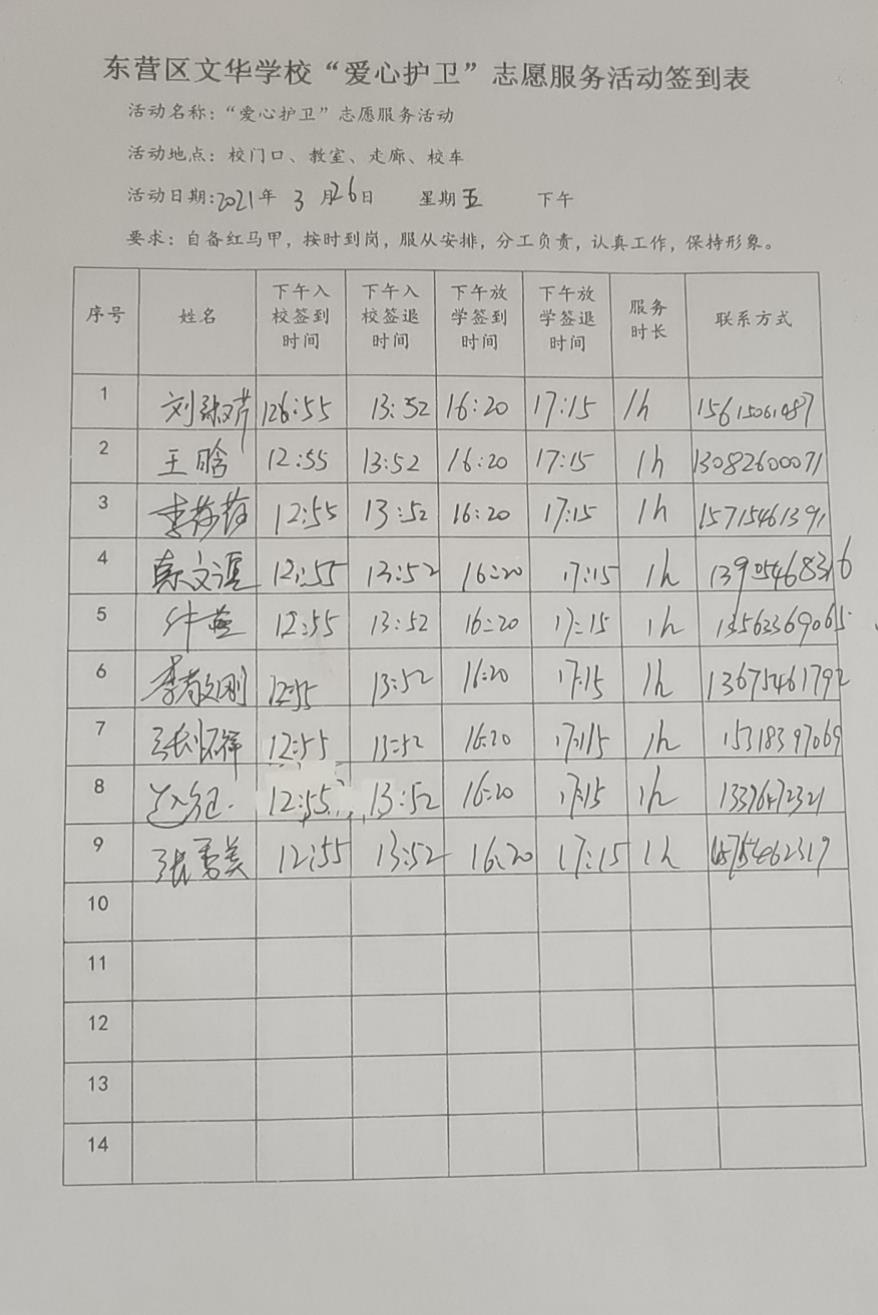 东营区文华学校“爱心护卫”志愿服务活动签到表
活动名称：“爱心护卫”志愿服务活动
活动地点：校门口、教室、走廊、校车
活动日期：2021年 3 月26日 星期五 下午
要求：自备红马甲，按时到岗，服从安排，分工负责，认真工作，保持形象。
序号 姓名 下午入校签到时间 下午入校签退时间 下午放学签到时间 下午放学签退时间 服务时长 联系方式
1 刘淑芹 126:55 13:52 16:20 17:15 1h 15615061487
2 王晗 12:55 13:52 16:20 17:15 1h 13082600071
3 12:55 13:52 16:20 17:15 1h 15715461391
4 12:55 13:52 16:20 17:15 1h
5 12:55 13:52 16:20 17:15 1h 13563369065
6 12:55 13:52 16:20 17:15 1h 13675461792
7 12:55 13:52 16:20 17:15 1h 15318397069
8 12:55 13:52 16:20 17:15 1h
9 张秀美 12:55 13:52 16:20 17:15 1h
10
11
12
13
14